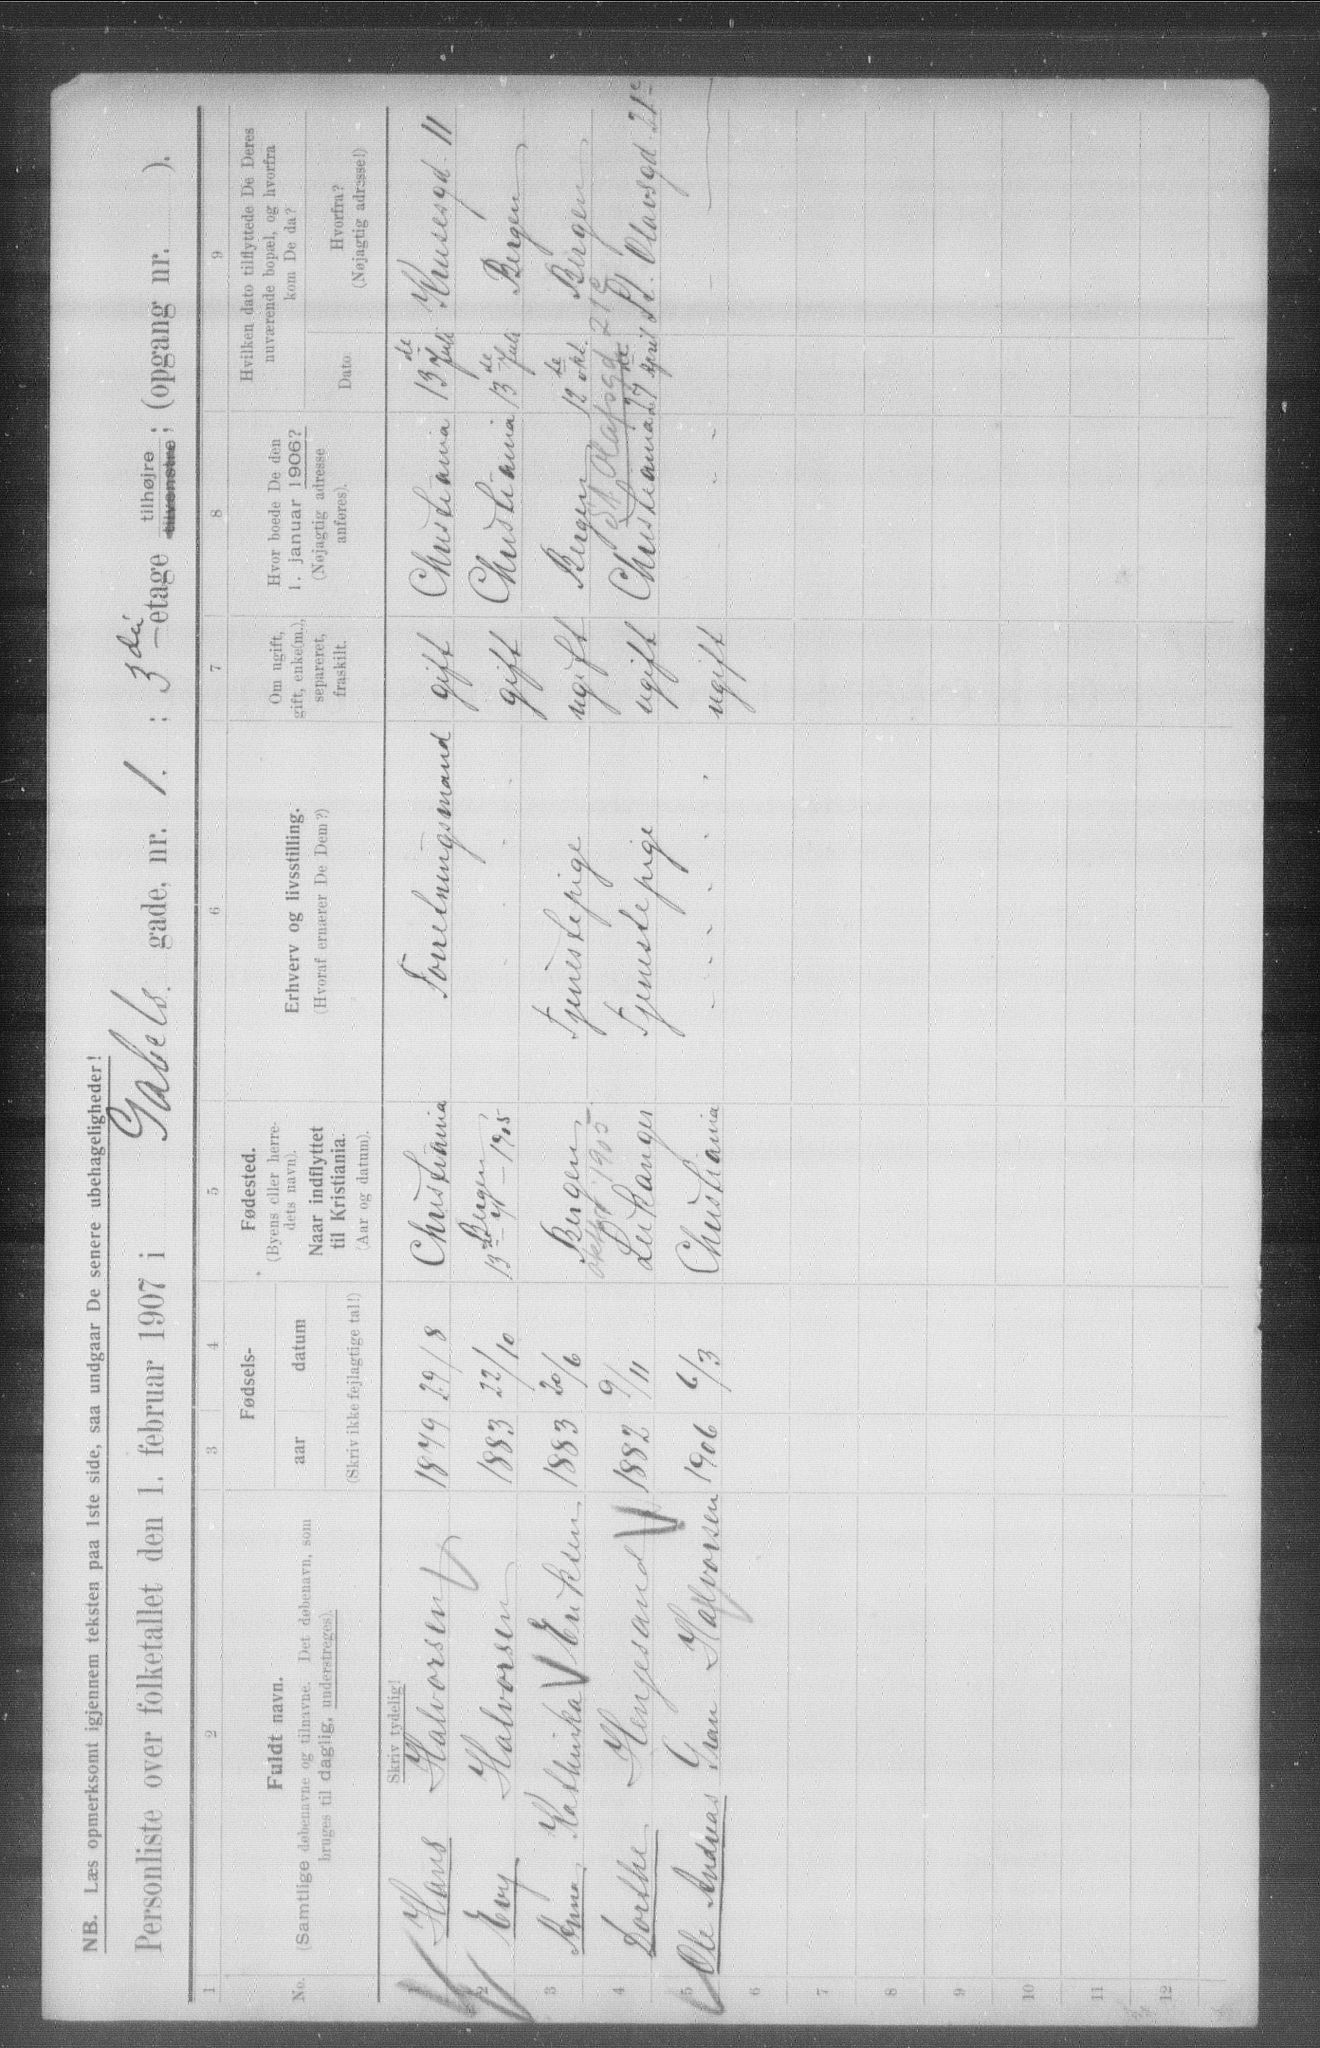 NB. Læs opmerksomt igjennem teksten paa 1ste side, saa undgaar De senere ubehageligheder!
Personliste over folketallet den 1. februar 1907 i Gabels gade, nr. 1. ; 3die -etage tilhøjre tilvenstre ; (opgang nr. ).
1 2 3 4 5 6 7 8 9
No.
Fuldt navn.
(Samtlige døbenavne og tilnavne. Det døbenavn, som
bruges til daglig, understreges).
Fødsels-
aar datum
(Skriv ikke fejlagtige tal!)
Fødested.
(Byens eller herre-
dets navn).
Naar indflyttet
til Kristiania.
(Aar og datum).
Erhverv og livsstilling.
(Hvoraf ernærer De Dem?)
Om ugift,
gift, enke(m.),
separeret,
fraskilt.
Hvor boede De den
1. januar 1906?
(Nøjagtig adresse
anføres).
Hvilken dato tilflyttede De Deres
nuværende bopæl, og hvorfra
kom De da?
Dato
Hvorfra?
(Nøjagtig adresse!)
Skriv tydelig!
1 Hans Halvorsen 1879 29/8 Christiania Forretningsmand gift Christiania 13de Juli Krusesgd. 11
2 Evy Halvorsen 1883 22/10 Bergen gift Christiania 13de Juli Bergen
1905
3 Anna Kathinka Eriksen 1883 20/6 Bergen Tjenestepige ugift Bergen 12te okt. Bergen
1905 St. Olafsgd 21c
4 Dorthe Henjesand 1882 9/11 Leikanger Tjenestepige ugift Christiania 27 April St. Olavsgd 21c
5 Ole Andreas Gran Halvorsen 1906 6/3 Christiania ugift
6
7
8
9
10
11
12